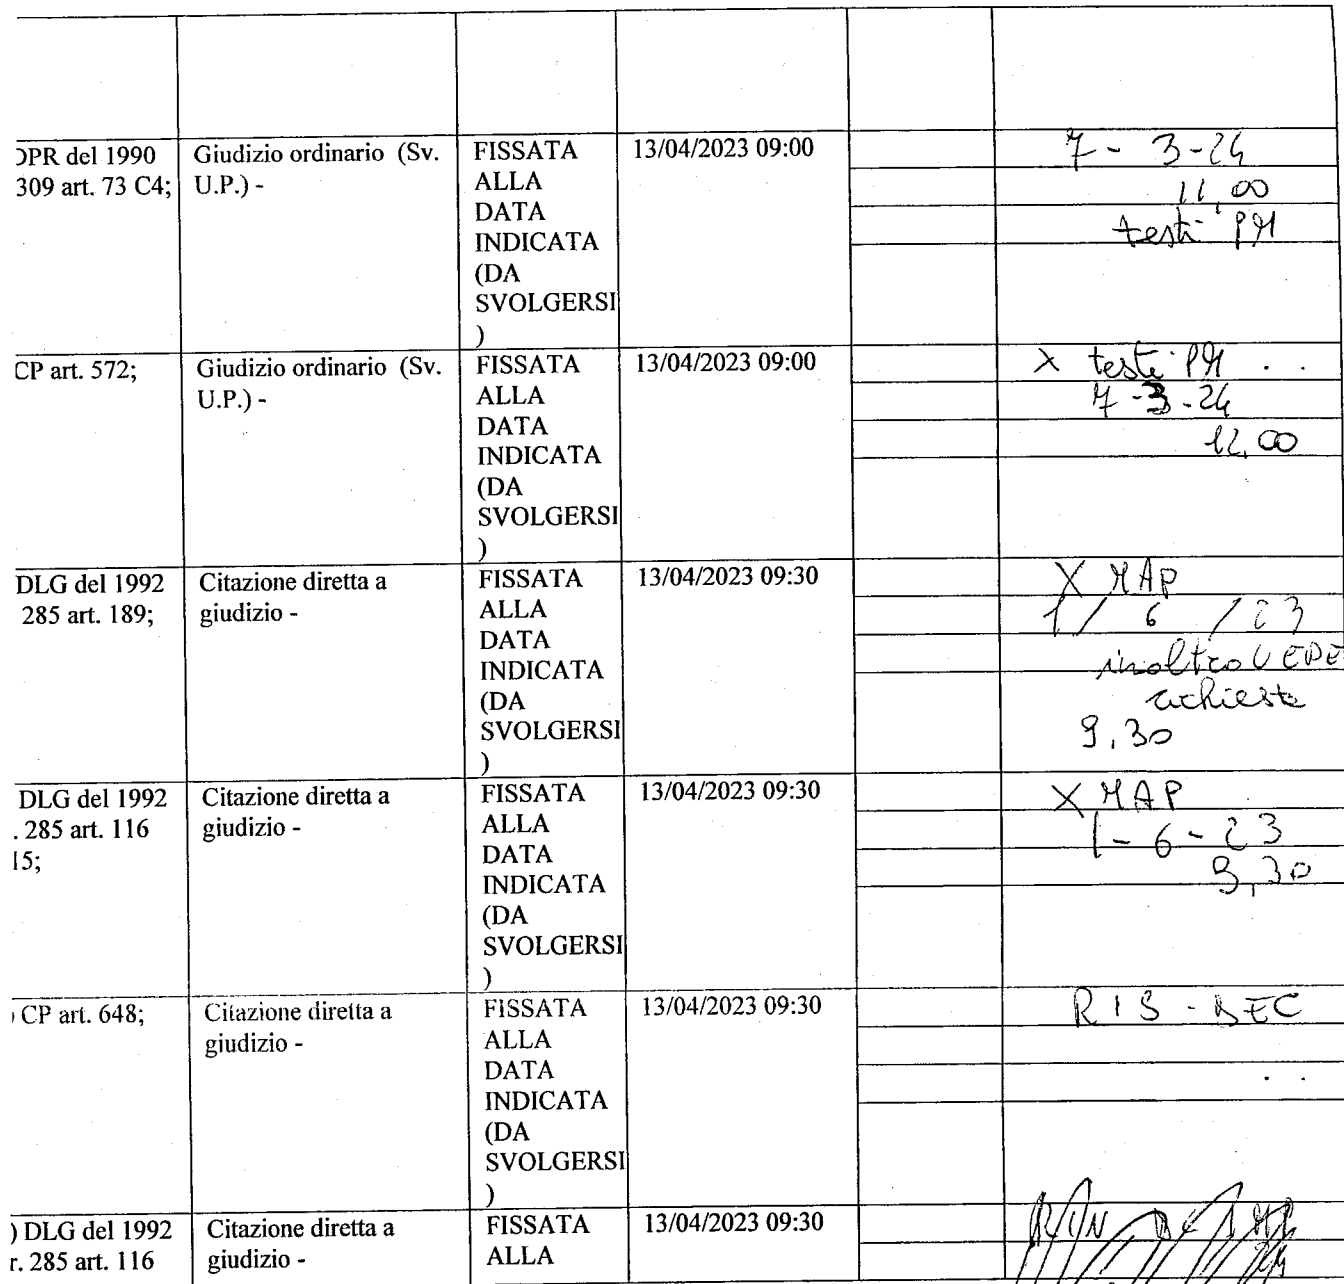 DPR del 1990
309 art. 73 C4;
Giudizio ordinario (Sv.
U.P.) -
FISSATA
ALLA
DATA
INDICATA
(DA
SVOLGERSI
)
13/04/2023 09:00
7 - 3-24
11,00
testi PM
CP art. 572;
Giudizio ordinario (Sv.
U.P.) -
FISSATA
ALLA
DATA
INDICATA
(DA
SVOLGERSI
)
13/04/2023 09:00
X testi PM
7-3-24
12,00
DLG del 1992
285 art. 189;
Citazione diretta a
giudizio -
FISSATA
ALLA
DATA
INDICATA
(DA
SVOLGERSI
)
13/04/2023 09:30
X MAP
1 / 6 / 23
inoltro UEPE
richiesta
9,30
DLG del 1992
. 285 art. 116
15;
Citazione diretta a
giudizio -
FISSATA
ALLA
DATA
INDICATA
(DA
SVOLGERSI
)
13/04/2023 09:30
X MAP
1-6-23
9,30
CP art. 648;
Citazione diretta a
giudizio -
FISSATA
ALLA
DATA
INDICATA
(DA
SVOLGERSI
)
13/04/2023 09:30
RIS - DEC
) DLG del 1992
r. 285 art. 116
Citazione diretta a
giudizio -
FISSATA
ALLA
13/04/2023 09:30